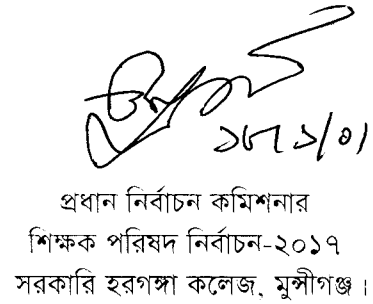 প্রধান নির্বাচন কমিশনার
শিক্ষক পরিষদ নির্বাচন-২০১৭
সরকারি হরগঙ্গা কলেজ, মুন্সীগঞ্জ।